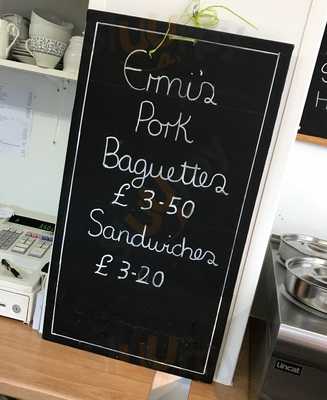 Ermi's
Pork
Baguettes
£ 3-50
Sandwiches
£ 3-20
Lincat